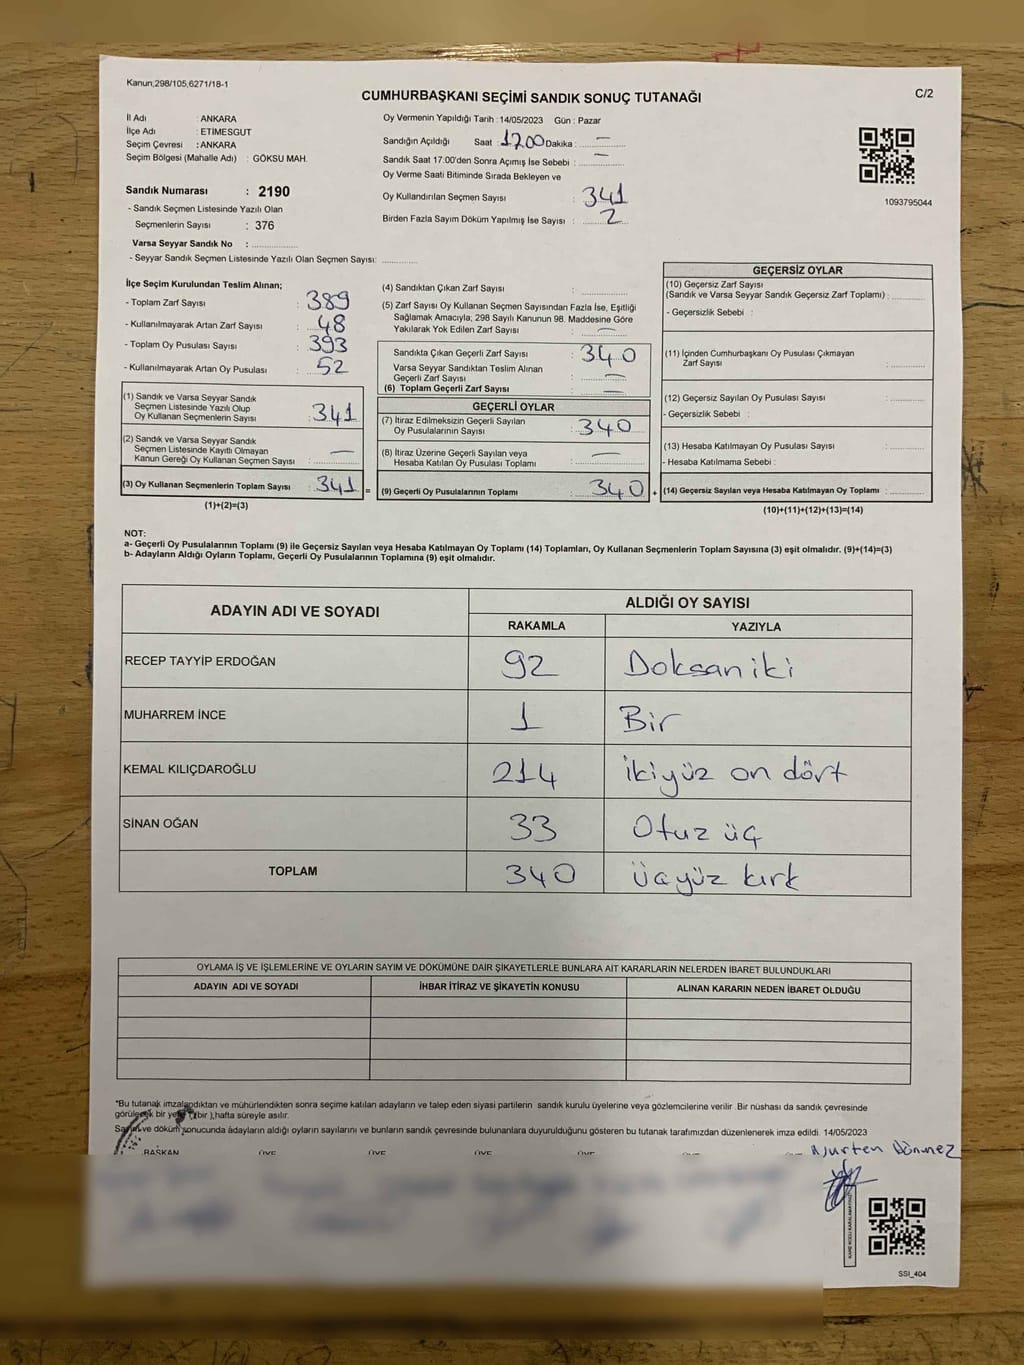 Kanun;298/105,6271/18-1
CUMHURBAŞKANI SEÇİMİ SANDIK SONUÇ TUTANAĞI
C/2
İl Adı : ANKARA
İlçe Adı : ETİMESGUT
Seçim Çevresi : ANKARA
Seçim Bölgesi (Mahalle Adı) : GÖKSU MAH.
Sandık Numarası : 2190
- Sandık Seçmen Listesinde Yazılı Olan
Seçmenlerin Sayısı : 376
Varsa Seyyar Sandık No : ..............
- Seyyar Sandık Seçmen Listesinde Yazılı Olan Seçmen Sayısı: ............
Oy Vermenin Yapıldığı Tarih : 14/05/2023 Gün : Pazar
Sandığın Açıldığı Saat : 17.00 Dakika : —
Sandık Saat 17:00'den Sonra Açılmış İse Sebebi : —
Oy Verme Saati Bitiminde Sırada Bekleyen ve
Oy Kullandırılan Seçmen Sayısı : 341
Birden Fazla Sayım Döküm Yapılmış İse Sayısı : 2
1093795044
İlçe Seçim Kurulundan Teslim Alınan;
- Toplam Zarf Sayısı : 389
- Kullanılmayarak Artan Zarf Sayısı : 48
- Toplam Oy Pusulası Sayısı : 393
- Kullanılmayarak Artan Oy Pusulası : 52
(1) Sandık ve Varsa Seyyar Sandık
Seçmen Listesinde Yazılı Olup
Oy Kullanan Seçmenlerin Sayısı : 341
(2) Sandık ve Varsa Seyyar Sandık
Seçmen Listesinde Kayıtlı Olmayan
Kanun Gereği Oy Kullanan Seçmen Sayısı : —
(3) Oy Kullanan Seçmenlerin Toplam Sayısı : 341 =
(1)+(2)=(3)
(4) Sandıktan Çıkan Zarf Sayısı : ..............
(5) Zarf Sayısı Oy Kullanan Seçmen Sayısından Fazla İse, Eşitliği
Sağlamak Amacıyla; 298 Sayılı Kanunun 98. Maddesine Göre
Yakılarak Yok Edilen Zarf Sayısı : —
Sandıkta Çıkan Geçerli Zarf Sayısı : 340
Varsa Seyyar Sandıktan Teslim Alınan
Geçerli Zarf Sayısı : —
(6) Toplam Geçerli Zarf Sayısı : —
GEÇERLİ OYLAR
(7) İtiraz Edilmeksizin Geçerli Sayılan
Oy Pusulalarının Sayısı : 340
(8) İtiraz Üzerine Geçerli Sayılan veya
Hesaba Katılan Oy Pusulası Toplamı : —
(9) Geçerli Oy Pusulalarının Toplamı : 340 +
GEÇERSİZ OYLAR
(10) Geçersiz Zarf Sayısı
(Sandık ve Varsa Seyyar Sandık Geçersiz Zarf Toplamı) : ............
- Geçersizlik Sebebi :
(11) İçinden Cumhurbaşkanı Oy Pusulası Çıkmayan
Zarf Sayısı : ............
(12) Geçersiz Sayılan Oy Pusulası Sayısı : ............
- Geçersizlik Sebebi :
(13) Hesaba Katılmayan Oy Pusulası Sayısı : ............
- Hesaba Katılmama Sebebi :
(14) Geçersiz Sayılan veya Hesaba Katılmayan Oy Toplamı : ............
(10)+(11)+(12)+(13)=(14)
NOT:
a- Geçerli Oy Pusulalarının Toplamı (9) ile Geçersiz Sayılan veya Hesaba Katılmayan Oy Toplamı (14) Toplamları, Oy Kullanan Seçmenlerin Toplam Sayısına (3) eşit olmalıdır. (9)+(14)=(3)
b- Adayların Aldığı Oyların Toplamı, Geçerli Oy Pusulalarının Toplamına (9) eşit olmalıdır.
ADAYIN ADI VE SOYADI ALDIĞI OY SAYISI
RAKAMLA YAZIYLA
RECEP TAYYİP ERDOĞAN 92 Doksan iki
MUHARREM İNCE 1 Bir
KEMAL KILIÇDAROĞLU 214 ikiyüz on dört
SİNAN OĞAN 33 Otuz üç
TOPLAM 340 üçyüz kırk
OYLAMA İŞ VE İŞLEMLERİNE VE OYLARIN SAYIM VE DÖKÜMÜNE DAİR ŞİKAYETLERLE BUNLARA AİT KARARLARIN NELERDEN İBARET BULUNDUKLARI
ADAYIN ADI VE SOYADI İHBAR İTİRAZ VE ŞİKAYETİN KONUSU ALINAN KARARIN NEDEN İBARET OLDUĞU
"Bu tutanak imzalandıktan ve mühürlendikten sonra seçime katılan adayların ve talep eden siyasi partilerin sandık kurulu üyelerine veya gözlemcilerine verilir .Bir nüshası da sandık çevresinde
görülecek bir yere 1(bir ),hafta süreyle asılır.
Sayım ve döküm sonucunda adayların aldığı oyların sayılarını ve bunların sandık çevresinde bulunanlara duyurulduğunu gösteren bu tutanak tarafımızdan düzenlenerek imza edildi. 14/05/2023
BAŞKAN ÜYE ÜYE ÜYE ÜYE
Nurten Dönmez
SSI_404